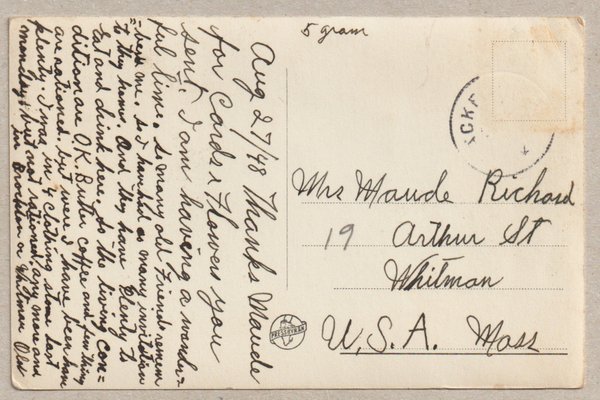 5 gram
Aug 27/48 Thanks Maude
for Cards & Flowers you
sent. I am having a wonder=
ful time. So many old Friends remem
=bers me. so I have had so many invitation
to they homes. And they have plenty to
Eat and drink here. So the living con=
ditions are O.K. Butter coffee and few thing
are rationed. but were I have been have
plenty. I was in 4 clothing store last
monday, but not rationed any more and
in Brockton or Whitman
Mrs Maude Richard
19 Arthur St
Whitman
U.S.A. Mass
PRESSBYRÅN